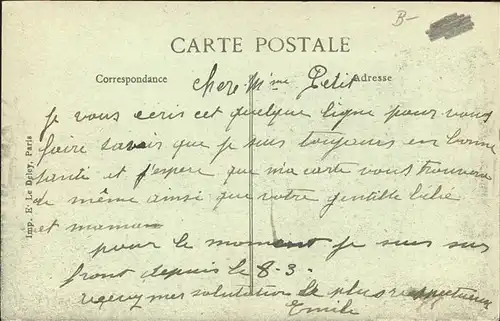 B-
CARTE POSTALE
Correspondance
Adresse
Chere Mme Petit
je vous ecris cet quelque ligne pour vous
faire savoir que je suis toujours en bonne
santé et j'espere que ma carte vous trouvera
de même ainsi que votre gentille bébé
et maman
pour le moment je suis sur
front depuis le 8-3.
recevez mes salutation le plus respectueux
Emile
Imp. E. Le Deley, Paris